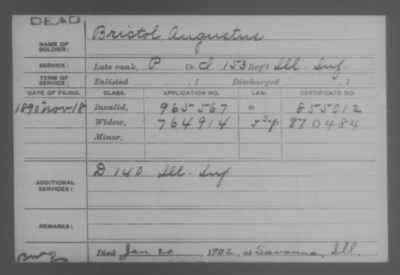 DEAD
NAME OF SOLDIER: Bristol, Augustus
SERVICE: Late rank, P Co. D, 153 Reg't Ill. Inf.
TERM OF SERVICE: Enlisted , 1 Discharged , 1
DATE OF FILING. CLASS. APPLICATION NO. LAW. CERTIFICATE NO.
1890 Nov 18 Invalid, 965567 0 855012
Widow, 764914 870484
Minor,
ADDITIONAL SERVICES: D 140 Ill. Inf
REMARKS:
Died Jan 20 1902, at Savanna, Ill.